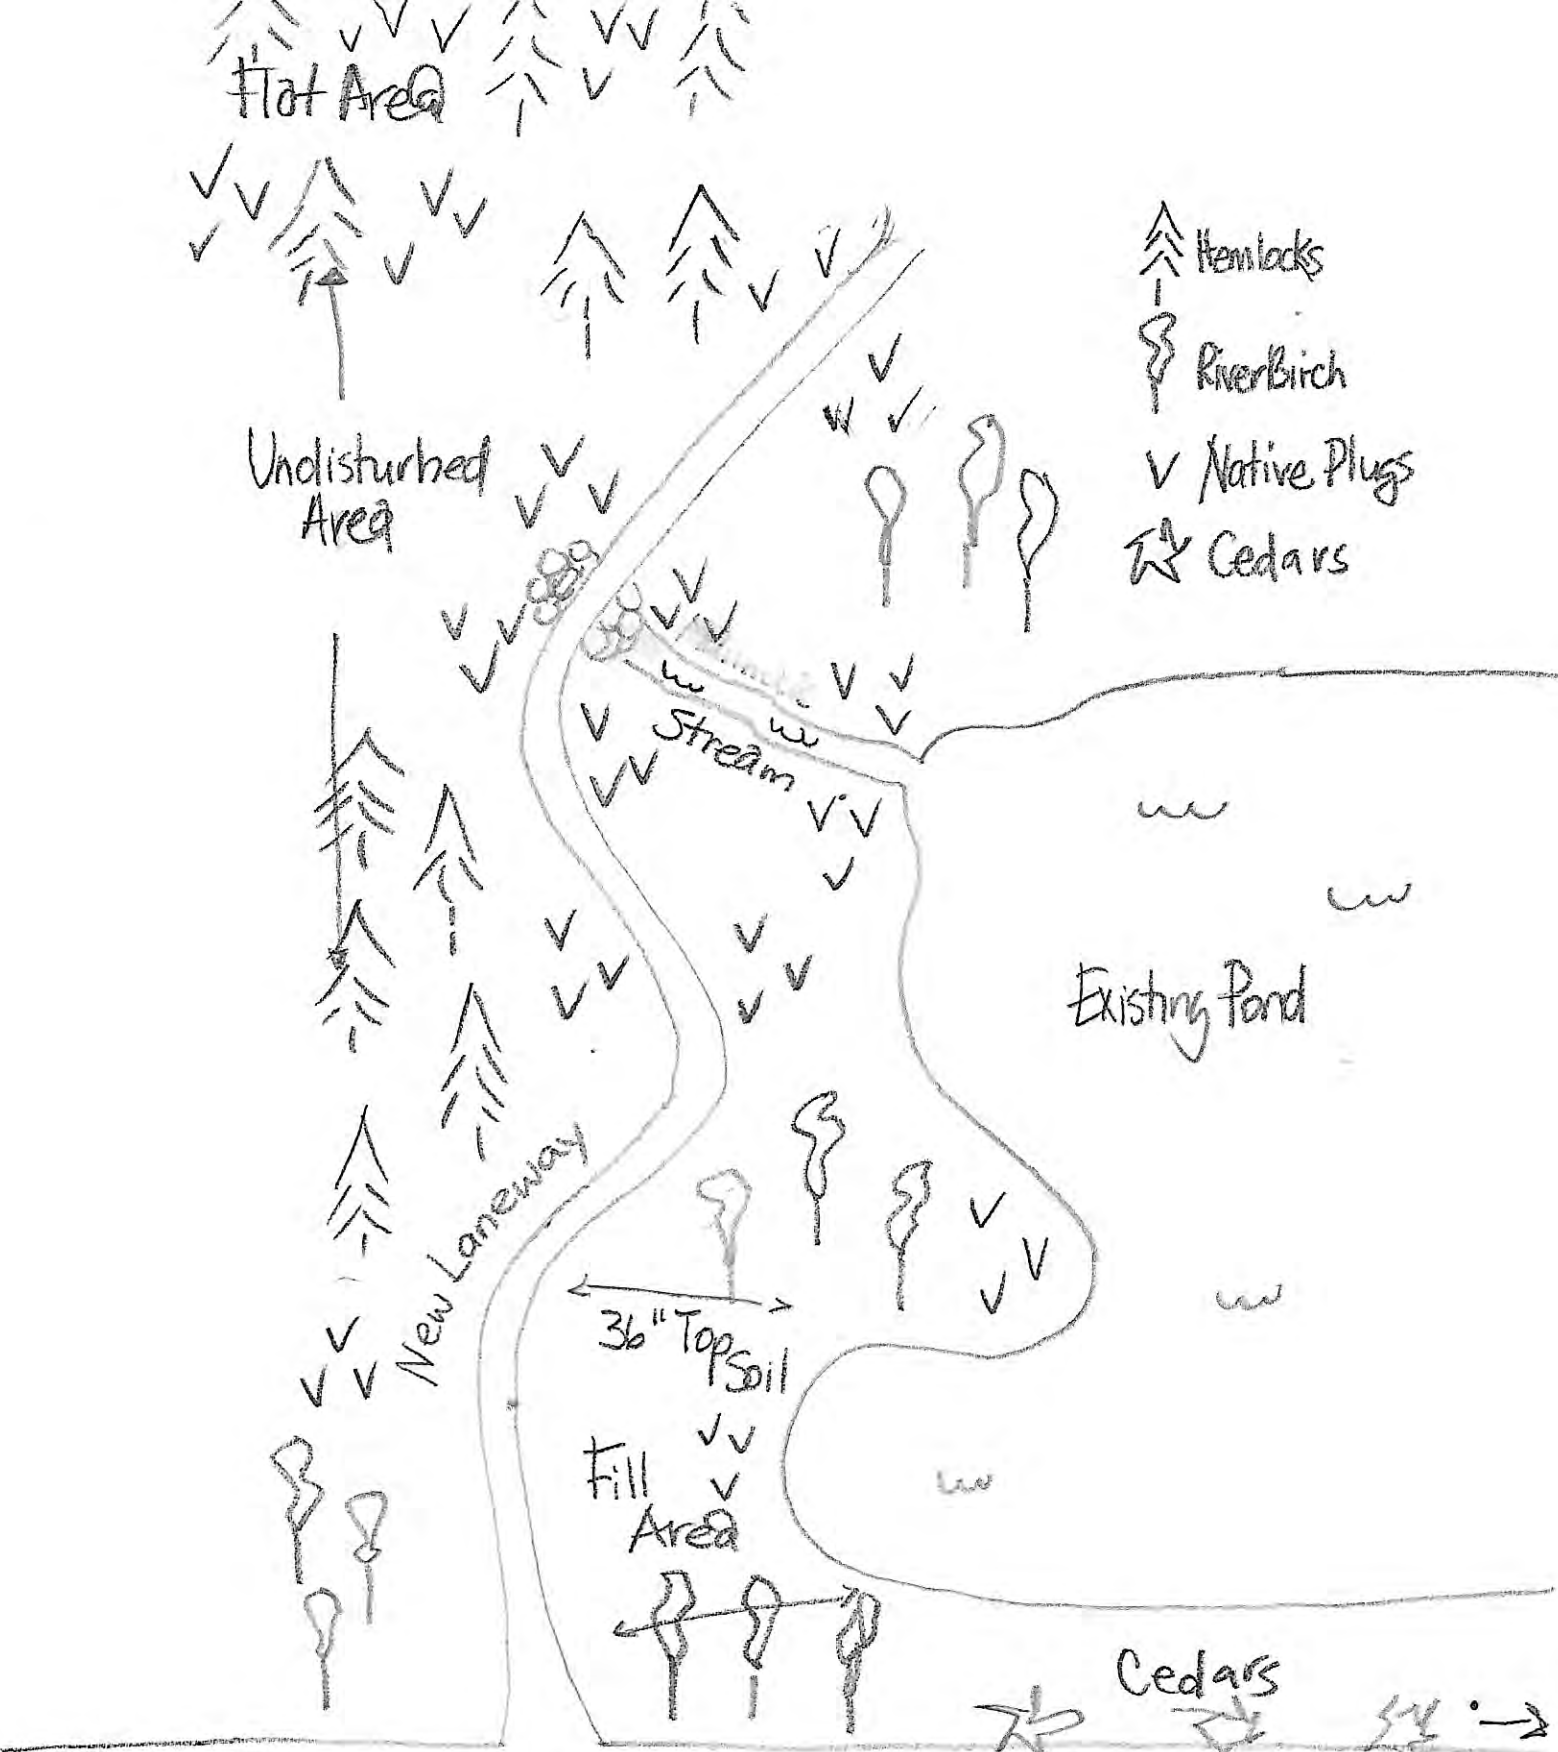 Flat Area
Hemlocks
RiverBirch
Native Plugs
Cedars
Undisturbed
Area
Stream
Existing Pond
New Laneway
36" Top
Soil
Fill
Area
Cedars